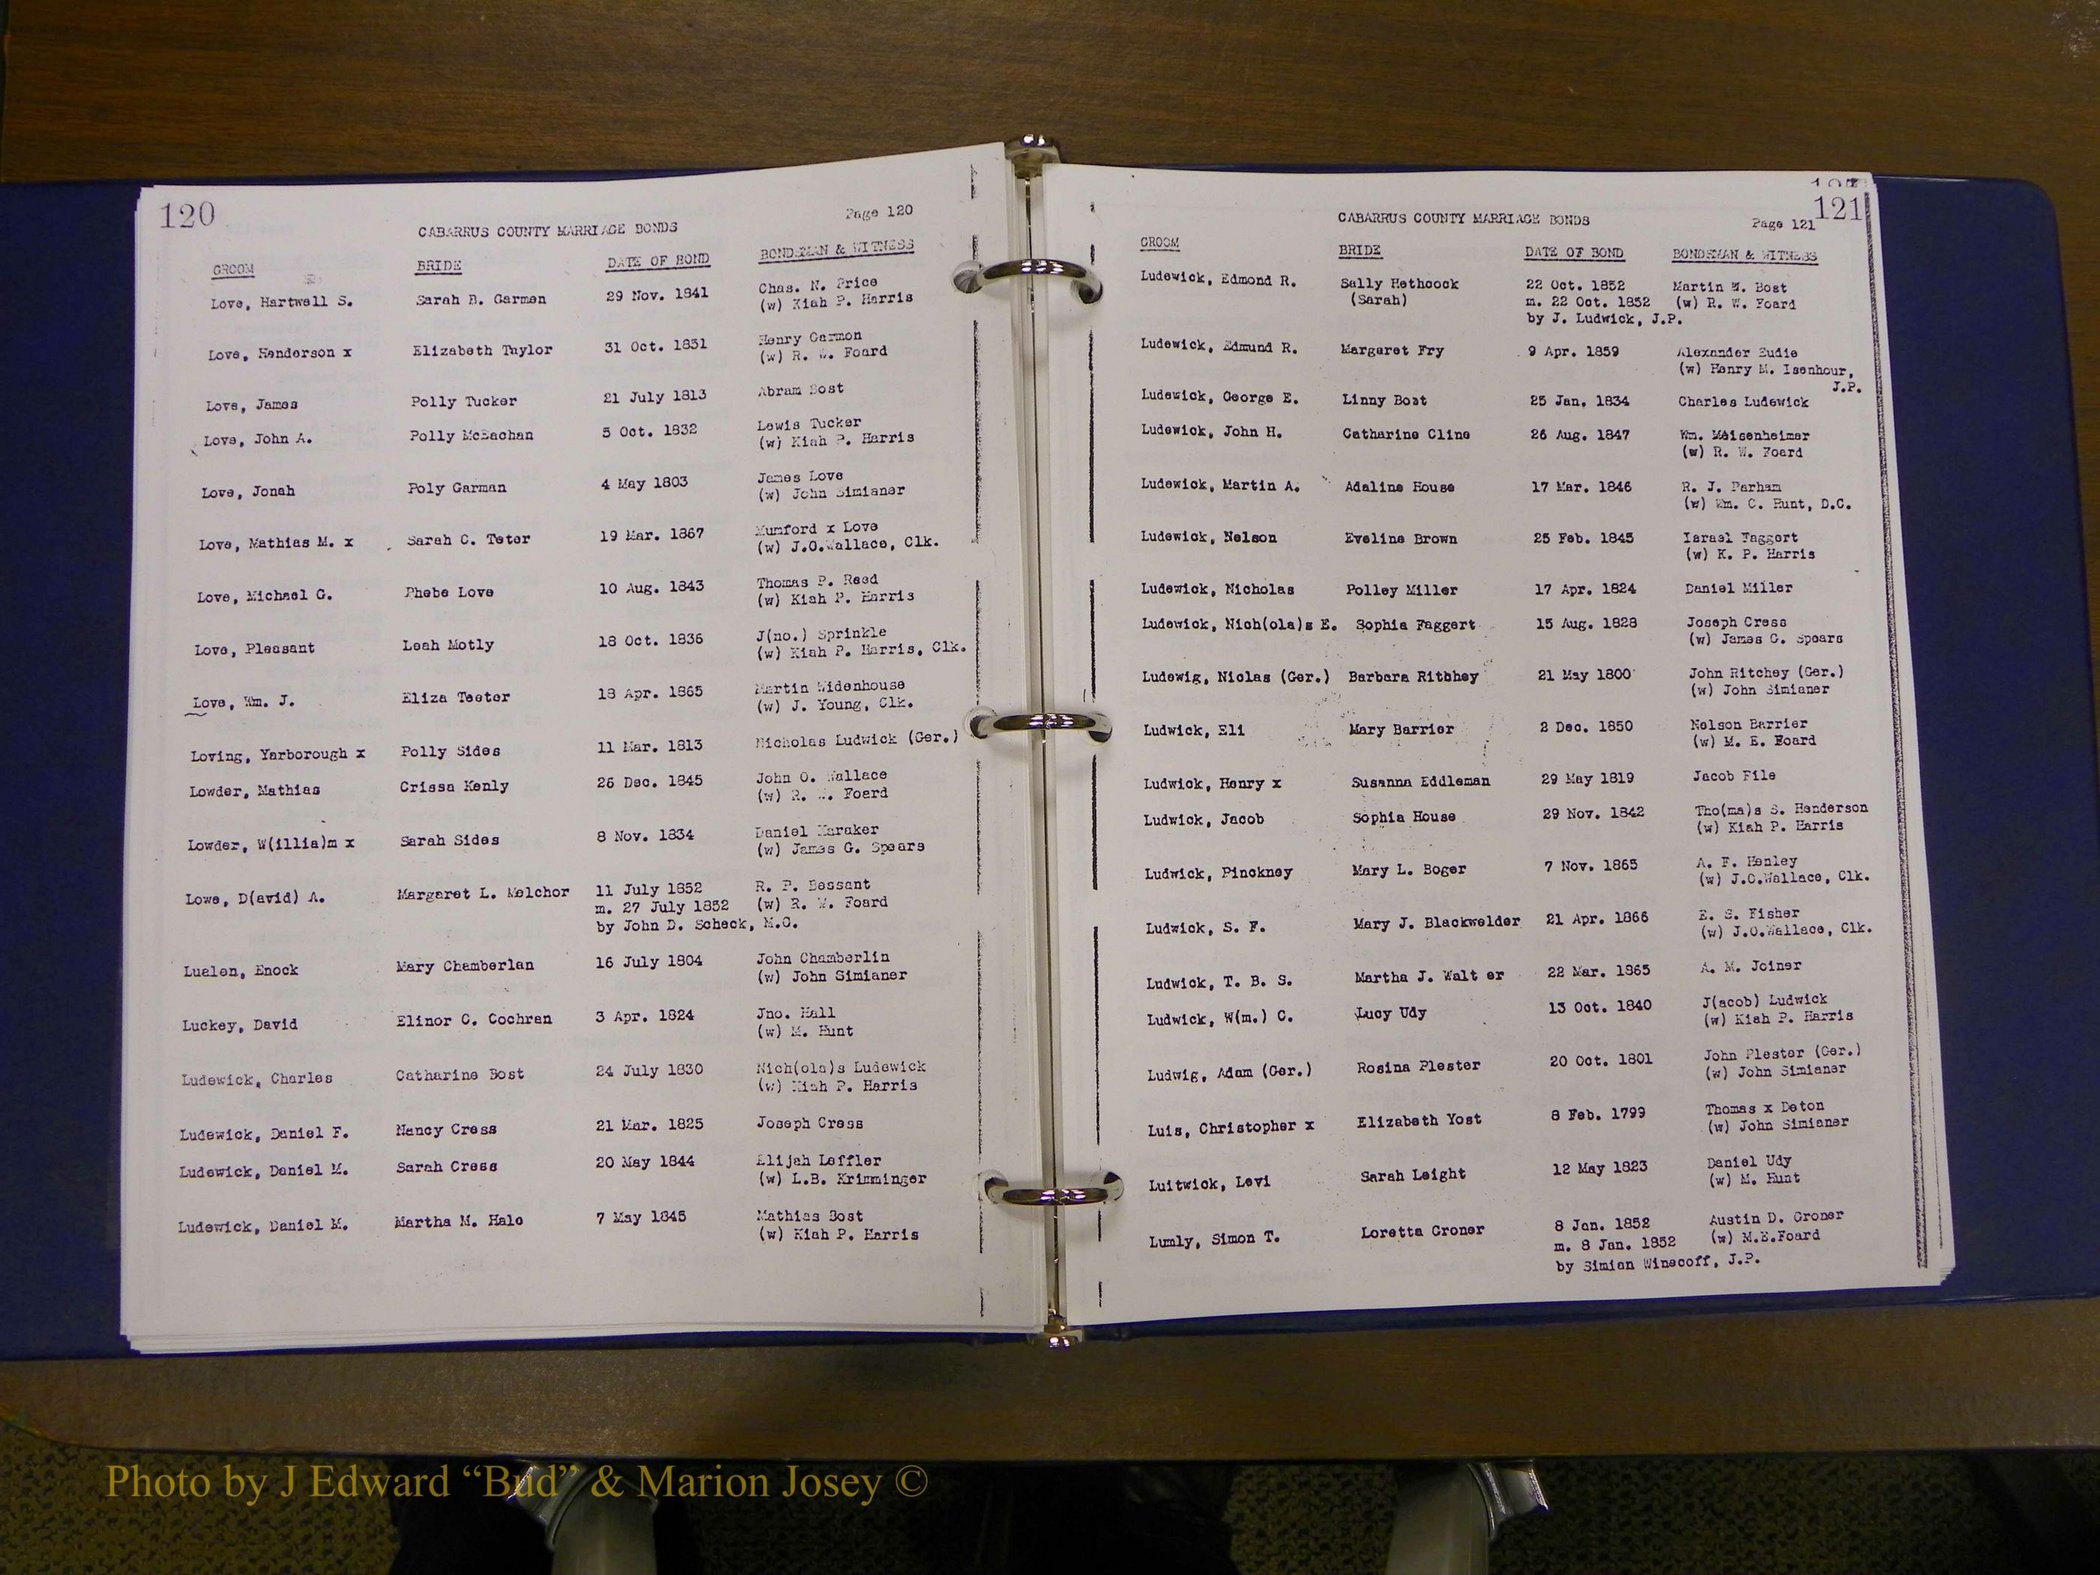 120
Page 120
CABARRUS COUNTY MARRIAGE BONDS
GROOM BRIDE DATE OF BOND BONDSMAN & WITNESS
Love, Hartwell S. Sarah B. Garmon 29 Nov. 1841 Chas. N. Price
(w) Kiah P. Harris
Love, Henderson x Elizabeth Taylor 31 Oct. 1851 Henry Garmon
(w) R. W. Foard
Love, James Polly Tucker 21 July 1813 Abram Bost
Love, John A. Polly McEachan 5 Oct. 1832 Lewis Tucker
(w) Kiah P. Harris
Love, Jonah Poly Garman 4 May 1803 James Love
(w) John Simianer
Love, Mathias M. x Sarah C. Teter 19 Mar. 1867 Mumford x Love
(w) J.O.Wallace, Clk.
Love, Michael G. Phebe Love 10 Aug. 1843 Thomas P. Reed
(w) Kiah P. Harris
Love, Pleasant Leah Motly 18 Oct. 1836 J(no.) Sprinkle
(w) Kiah P. Harris, Clk.
Love, Wm. J. Eliza Teeter 18 Apr. 1865 Martin Widenhouse
(w) J. Young, Clk.
Loving, Yarborough x Polly Sides 11 Mar. 1813 Nicholas Ludwick (Ger.)
Lowder, Mathias Crissa Kenly 26 Dec. 1845 John O. Wallace
(w) R. W. Foard
Lowder, W(illia)m x Sarah Sides 8 Nov. 1834 Daniel Haraker
(w) James G. Spears
Lowe, D(avid) A. Margaret L. Melchor 11 July 1852 R. P. Bessant
m. 27 July 1852 (w) R. W. Foard
by John D. Scheck, M.G.
Luelen, Enock Mary Chamberlan 16 July 1804 John Chamberlin
(w) John Simianer
Luckey, David Elinor C. Cochran 3 Apr. 1824 Jno. Hall
(w) M. Hunt
Ludewick, Charles Catharine Bost 24 July 1830 Nich(ola)s Ludewick
(w) Kiah P. Harris
Ludewick, Daniel F. Nancy Cress 21 Mar. 1825 Joseph Cress
Ludewick, Daniel M. Sarah Cress 20 May 1844 Elijah Leffler
(w) L.B. Krimminger
Ludewick, Daniel M. Martha M. Hale 7 May 1845 Mathias Bost
(w) Kiah P. Harris
121
Page 121
CABARRUS COUNTY MARRIAGE BONDS
GROOM BRIDE DATE OF BOND BONDSMAN & WITNESS
Ludewick, Edmond R. Sally Hethcock 22 Oct. 1852 Martin W. Bost
(Sarah) m. 22 Oct. 1852 (w) R. W. Foard
by J. Ludwick, J.P.
Ludewick, Edmund R. Margaret Fry 9 Apr. 1859 Alexander Eudie
(w) Henry M. Isenhour,
J.P.
Ludewick, George E. Linny Bost 25 Jan. 1834 Charles Ludewick
Ludewick, John H. Catharine Cline 26 Aug. 1847 Wm. Meisenheimer
(w) R. W. Foard
Ludewick, Martin A. Adaline House 17 Mar. 1846 R. J. Parham
(w) Wm. C. Hunt, D.C.
Ludewick, Nelson Eveline Brown 25 Feb. 1845 Israel Faggert
(w) K. P. Harris
Ludewick, Nicholas Polley Miller 17 Apr. 1824 Daniel Miller
Ludewick, Nich(ola)s E. Sophia Faggert 15 Aug. 1828 Joseph Cress
(w) James G. Spears
Ludewig, Niclas (Ger.) Barbara Ritchey 21 May 1800 John Ritchey (Ger.)
(w) John Simianer
Ludwick, Eli Mary Barrier 2 Dec. 1850 Nelson Barrier
(w) M. E. Foard
Ludwick, Henry x Susanna Eddleman 29 May 1819 Jacob File
Ludwick, Jacob Sophia House 29 Nov. 1842 Tho(ma)s S. Henderson
(w) Kiah P. Harris
Ludwick, Pinckney Mary L. Boger 7 Nov. 1865 A. F. Henley
(w) J.O.Wallace, Clk.
Ludwick, S. F. Mary J. Blackwelder 21 Apr. 1866 E. S. Fisher
(w) J.O.Wallace, Clk.
Ludwick, T. B. S. Martha J. Walt er 22 Mar. 1865 A. M. Joiner
Ludwick, W(m.) C. Lucy Udy 13 Oct. 1840 J(acob) Ludwick
(w) Kiah P. Harris
Ludwig, Adam (Ger.) Rosina Plester 20 Oct. 1801 John Plester (Ger.)
(w) John Simianer
Luis, Christopher x Elizabeth Yost 8 Feb. 1799 Thomas x Deton
(w) John Simianer
Luitwick, Levi Sarah Leight 12 May 1823 Daniel Udy
(w) M. Hunt
Lumly, Simon T. Loretta Groner 8 Jan. 1852 Austin D. Groner
m. 8 Jan. 1852 (w) M.E.Foard
by Simian Winecoff, J.P.
Photo by J Edward “Bud” & Marion Josey ©